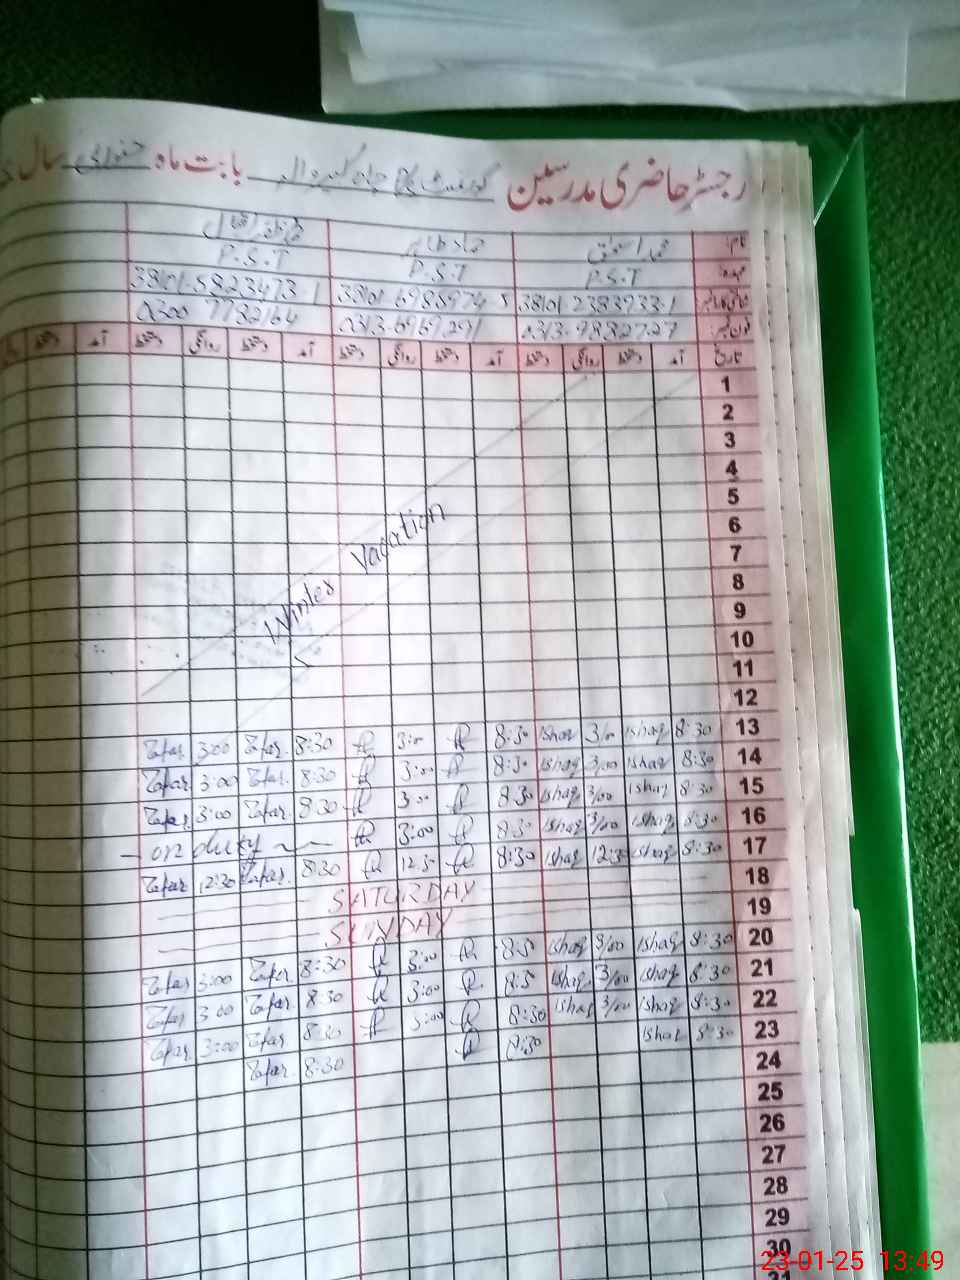 رجسٹر حاضری مدرسین گورنمنٹ بابت ماہ جنوری سال
نام: محمد اسحق حماد طاہر ظفر اقبال
عہدہ: P.S.T P.S.T P.S.T
شناختی کارڈ نمبر: 38101-2383933-1 38101-6985974-5 38101-5823473-1
فون نمبر: 0313-7882727 0313-6969291 0300 7782164
تاریخ آمد دستخط روانگی دستخط آمد دستخط روانگی دستخط آمد دستخط روانگی دستخط آمد دستخط
1
2
3
4
5
6
7
8
9
10
11
12
Winter Vacation
13 8:30 Ishaq 3/00 Ishaq 8:30 3:00 8:30 Zafar 3:00 Zafar
14 8:30 Ishaq 3/00 Ishaq 8:30 3:00 8:30 Zafar 3:00 Zafar
15 8:30 Ishaq 3/00 Ishaq 8:30 3:00 8:30 Zafar 3:00 Zafar
16 8:30 Ishaq 3/00 Ishaq 8:30 3:00 on duty
17 8:30 Ishaq 12:30 Ishaq 8:30 12:30 8:30 Zafar 12:30 Zafar
18 SATURDAY
19 SUNDAY
20 8:30 Ishaq 3/00 Ishaq 8:30 3:00 8:30 Zafar 3:00 Zafar
21 8:30 Ishaq 3/00 Ishaq 8:30 3:00 8:30 Zafar 3:00 Zafar
22 8:30 Ishaq 3/00 Ishaq 8:30 3:00 8:30 Zafar 3:00 Zafar
23 8:30 Ishaq 8:30 8:30 Zafar
24
25
26
27
28
29
30
31
23-01-25 13:49